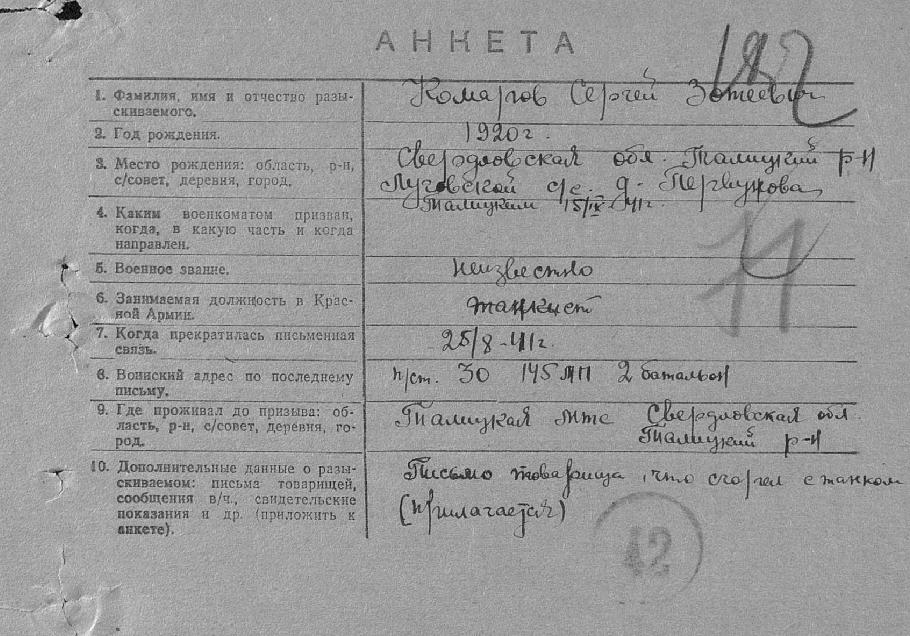 АНКЕТА
1. Фамилия, имя и отчество разы-
скиваемого.
Комаров Сергей Зотеевич
2. Год рождения.
1920 г.
3. Место рождения: область, р-н,
с/совет, деревня, город.
Свердловская обл. Талицкий р-н
Луговской с/с. д. Первухова
4. Каким военкоматом призван,
когда, в какую часть и когда
направлен.
Талицким 15/IX-41г.
5. Военное звание.
неизвестно
6. Занимаемая должность в Крас-
ной Армии.
танкист
7. Когда прекратилась письменная
связь.
25/8-41г.
8. Воинский адрес по последнему
письму.
п/ст. 30 145 2 батальон
9. Где проживал до призыва: об-
ласть, р-н, с/совет, деревня, го-
род.
Талицкая мтс Свердловская обл.
Талицкий р-н
10. Дополнительные данные о разы-
скиваемом: письма товарищей,
сообщения в/ч., свидетельские
показания и др. (приложить к
анкете).
Письмо товарища, что сгорел с танком
(прилагается)
42